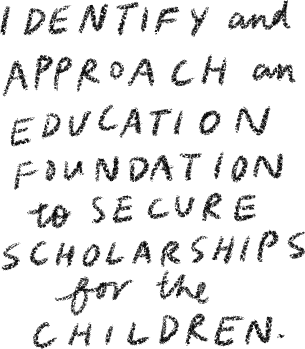 IDENTIFY and
APPROACH an
EDUCATION
FOUNDATION
to SECURE
SCHOLARSHIPS
for the
CHILDREN.